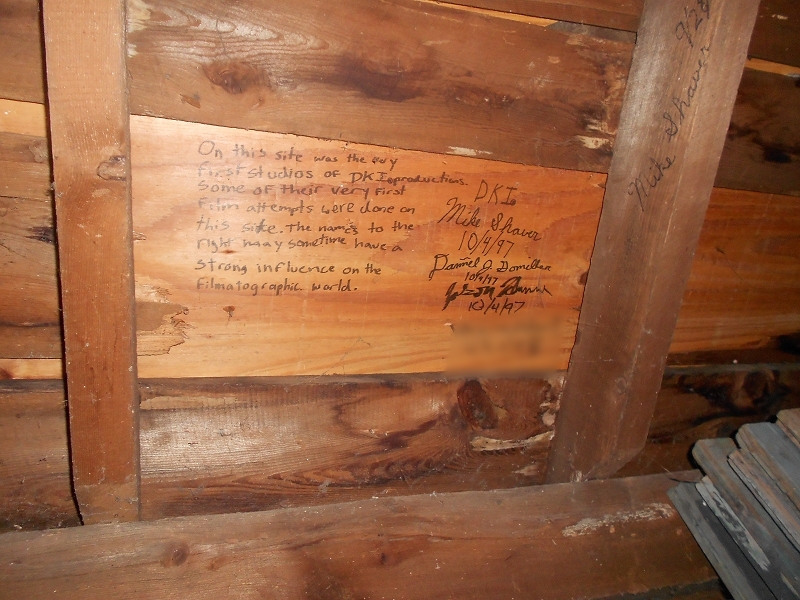 On this site was the very
first studios of DKI productions.
Some of their very first
film attempts were done on
this site. The names to the
right may sometime have a
strong influence on the
filmatographic world.
DKI
Mike Shaver
10/4/97
Daniel J
10/4/97
10/4/97
Mike Shaver 9/28